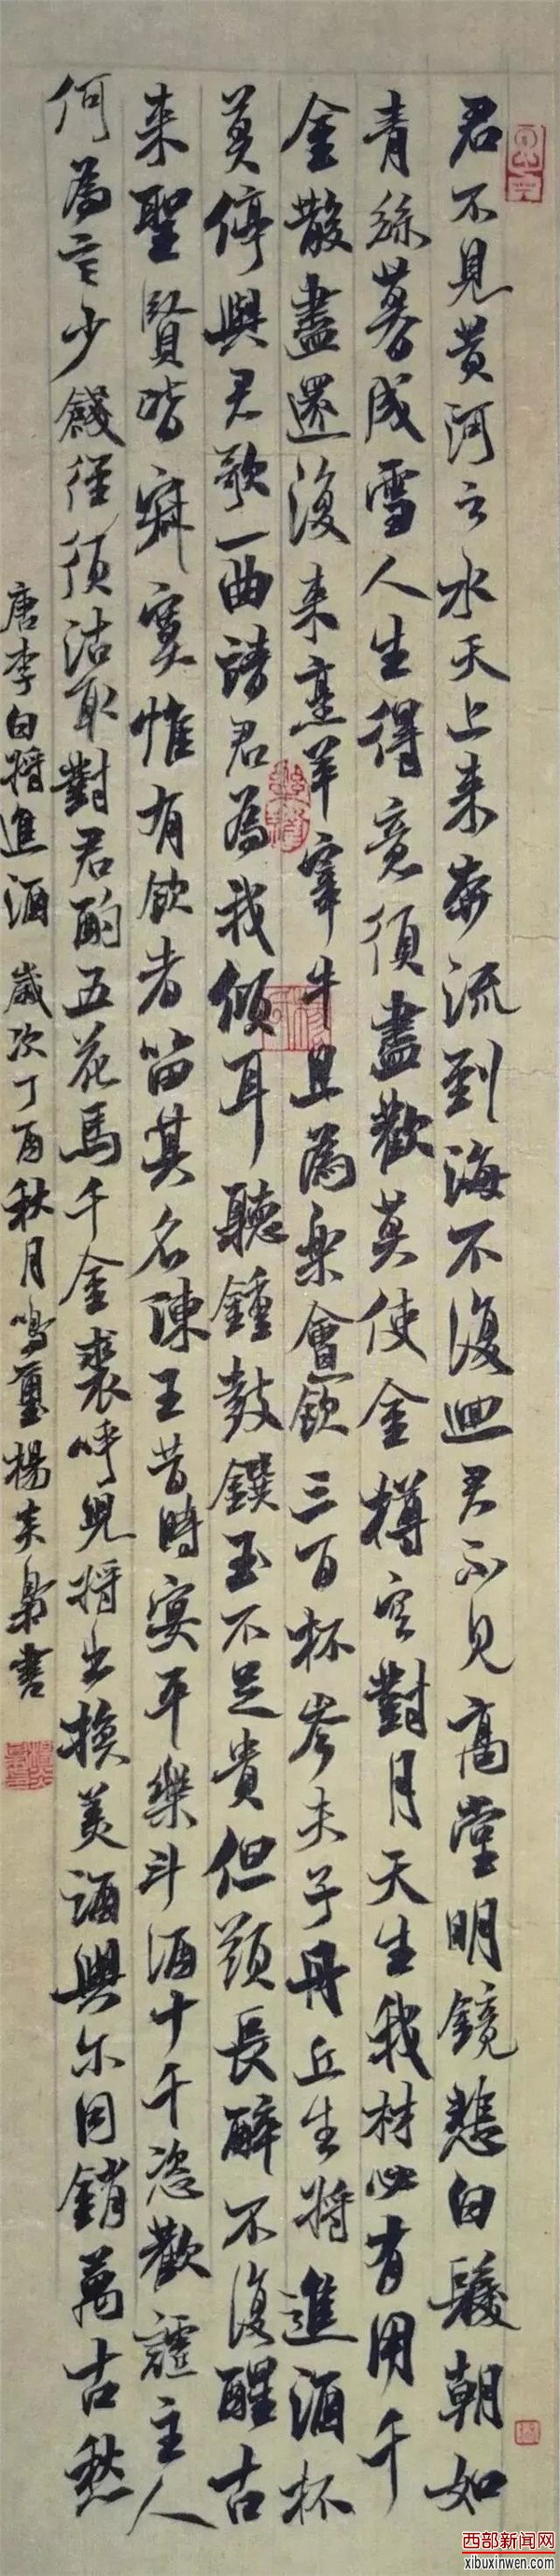 君不見黄河之水天上来奔流到海不復迴君不見高堂明鏡悲白髮朝如
青絲暮成雪人生得意須盡歡莫使金樽空對月天生我材必有用千
金散盡還復来烹羊宰牛且為樂會飲三百杯岑夫子丹丘生將進酒杯
莫停與君歌一曲請君為我傾耳聽鍾鼓饌玉不足貴但願長醉不復醒古
来聖賢皆寂寞惟有飲者留其名陳王昔時宴平樂斗酒十千恣歡謔主人
何為言少錢徑須沽取對君酌五花馬千金裘呼兒將出換美酒與尔同銷萬古愁
唐李白將進酒 歲次丁酉秋月鳴璽楊炎梟書
西部新闻网
xibuxinwen.com